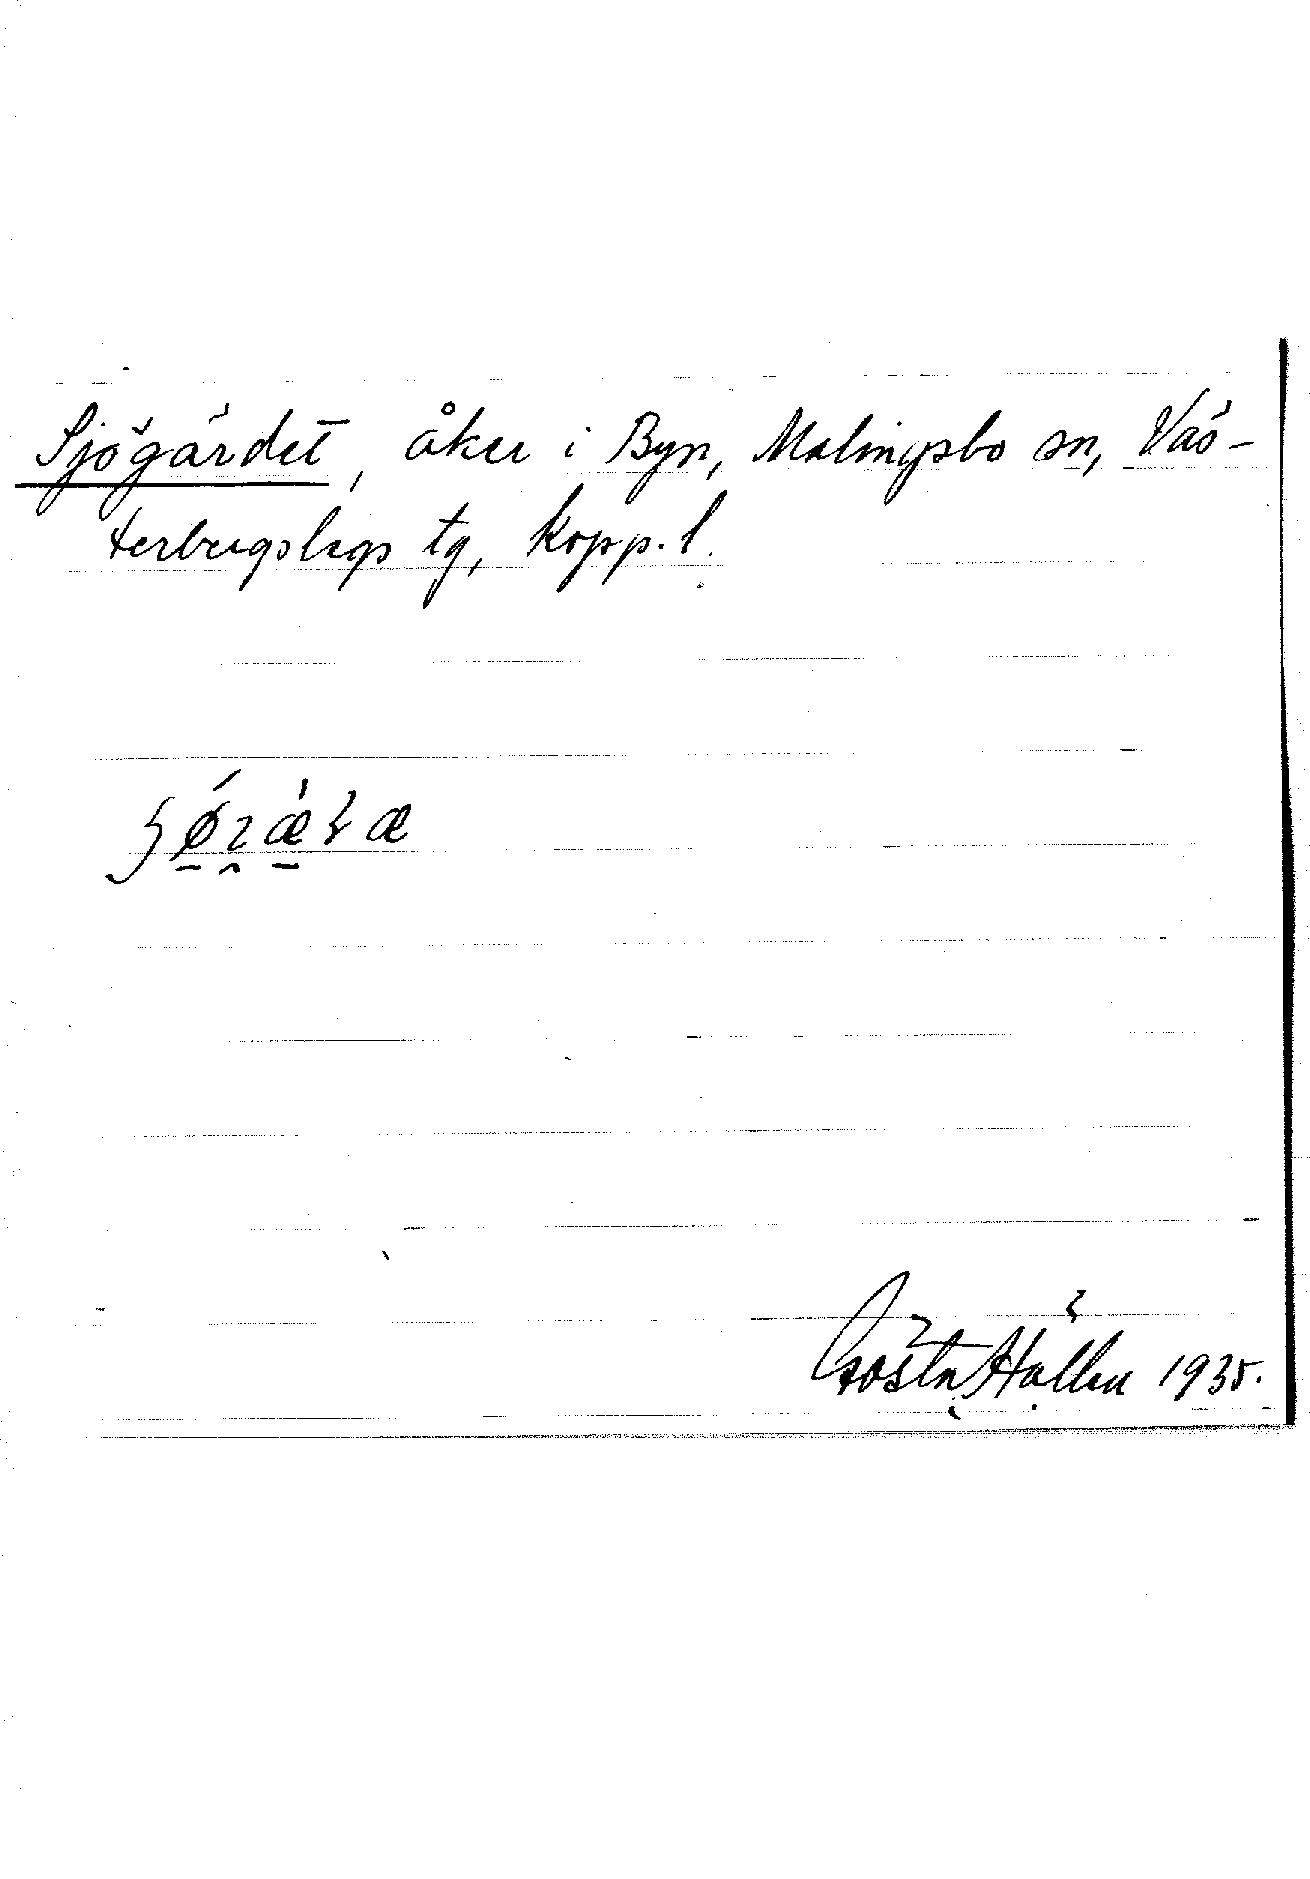 Sjögärdet, åker i Byn, Malingsbo sn, Väs-
terbergslags tg, Kopp. l.
Gösta Hallen 1935.